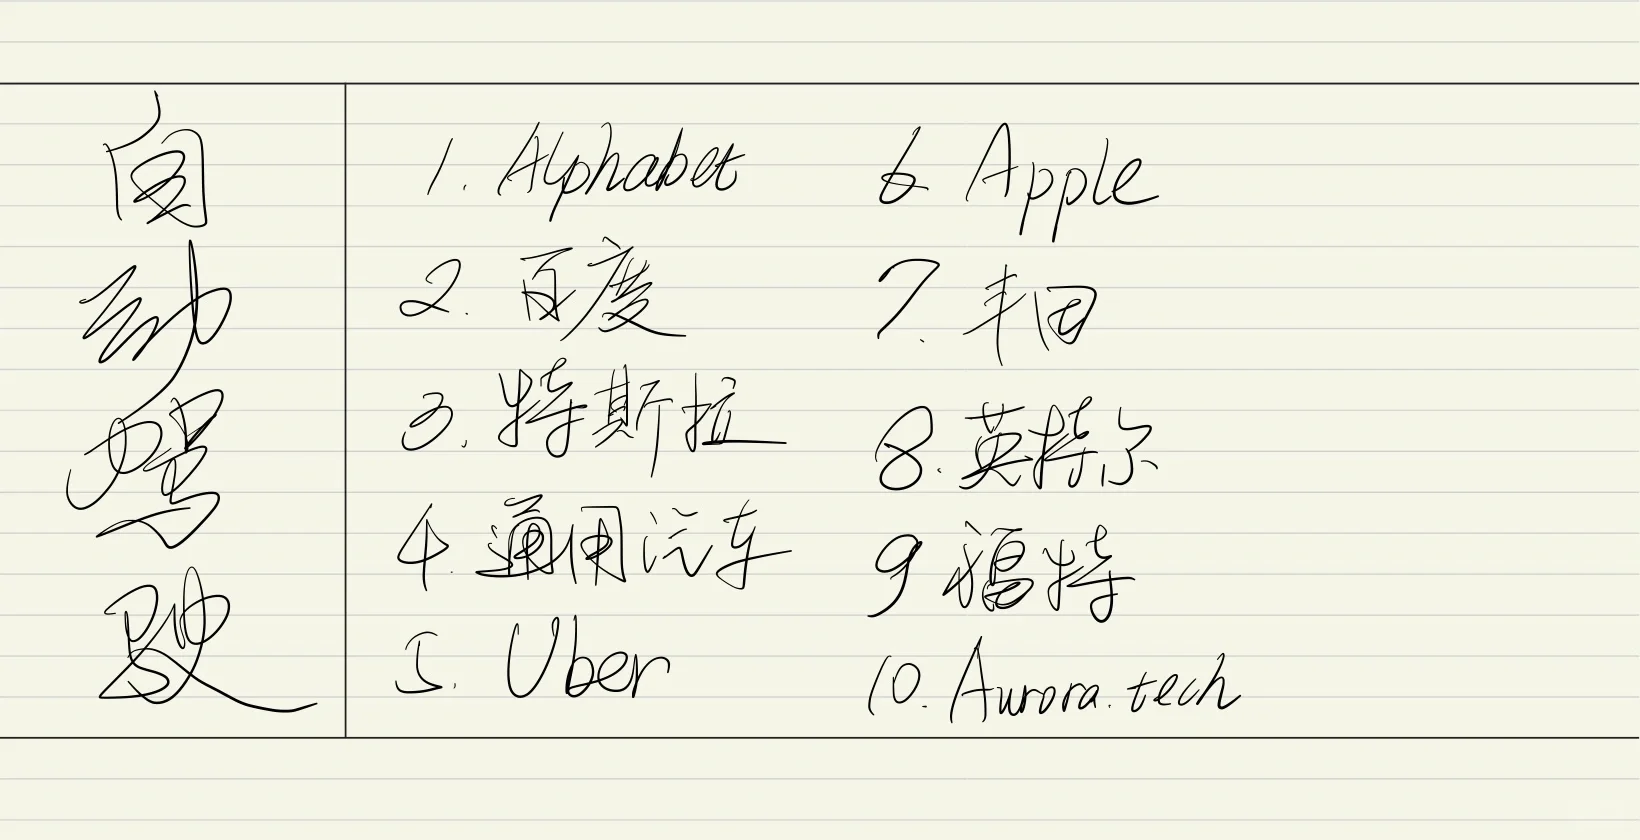 自动驾驶
1. Alphabet
2. 百度
3. 特斯拉
4. 通用汽车
5. Uber
6 Apple
7. 丰田
8. 英特尔
9 福特
10. Aurora.tech